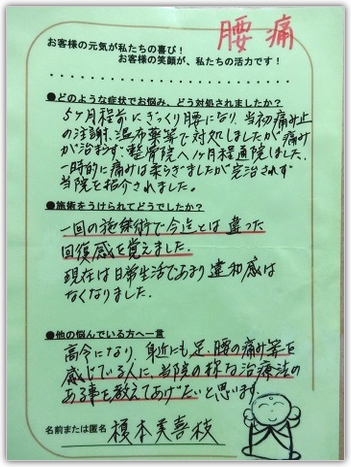 腰痛
お客様の元気が私たちの喜び！
お客様の笑顔が、私たちの活力です！
●どのような症状でお悩み、どう対処されましたか？
5ヶ月程前にぎっくり腰になり、当初痛み止
の注謝、湿布薬等で対処しましたが痛み
が治まらず、整骨院へ1ヶ月程通院しました。
一時的に痛みは柔らぎましたが完治されず
当院を紹介されました。
●施術をうけられてどうでしたか？
一回の施術で今迄とは違った
回復感を覚えました。
現在は日常生活であまり違和感は
なくなりました。
●他の悩んでいる方へ一言
高令になり、身近にも足、腰の痛み等を
感じている人に、当院の様な治療法の
ある事を教えてあげたいと思います。
名前または匿名 榎本美喜枝